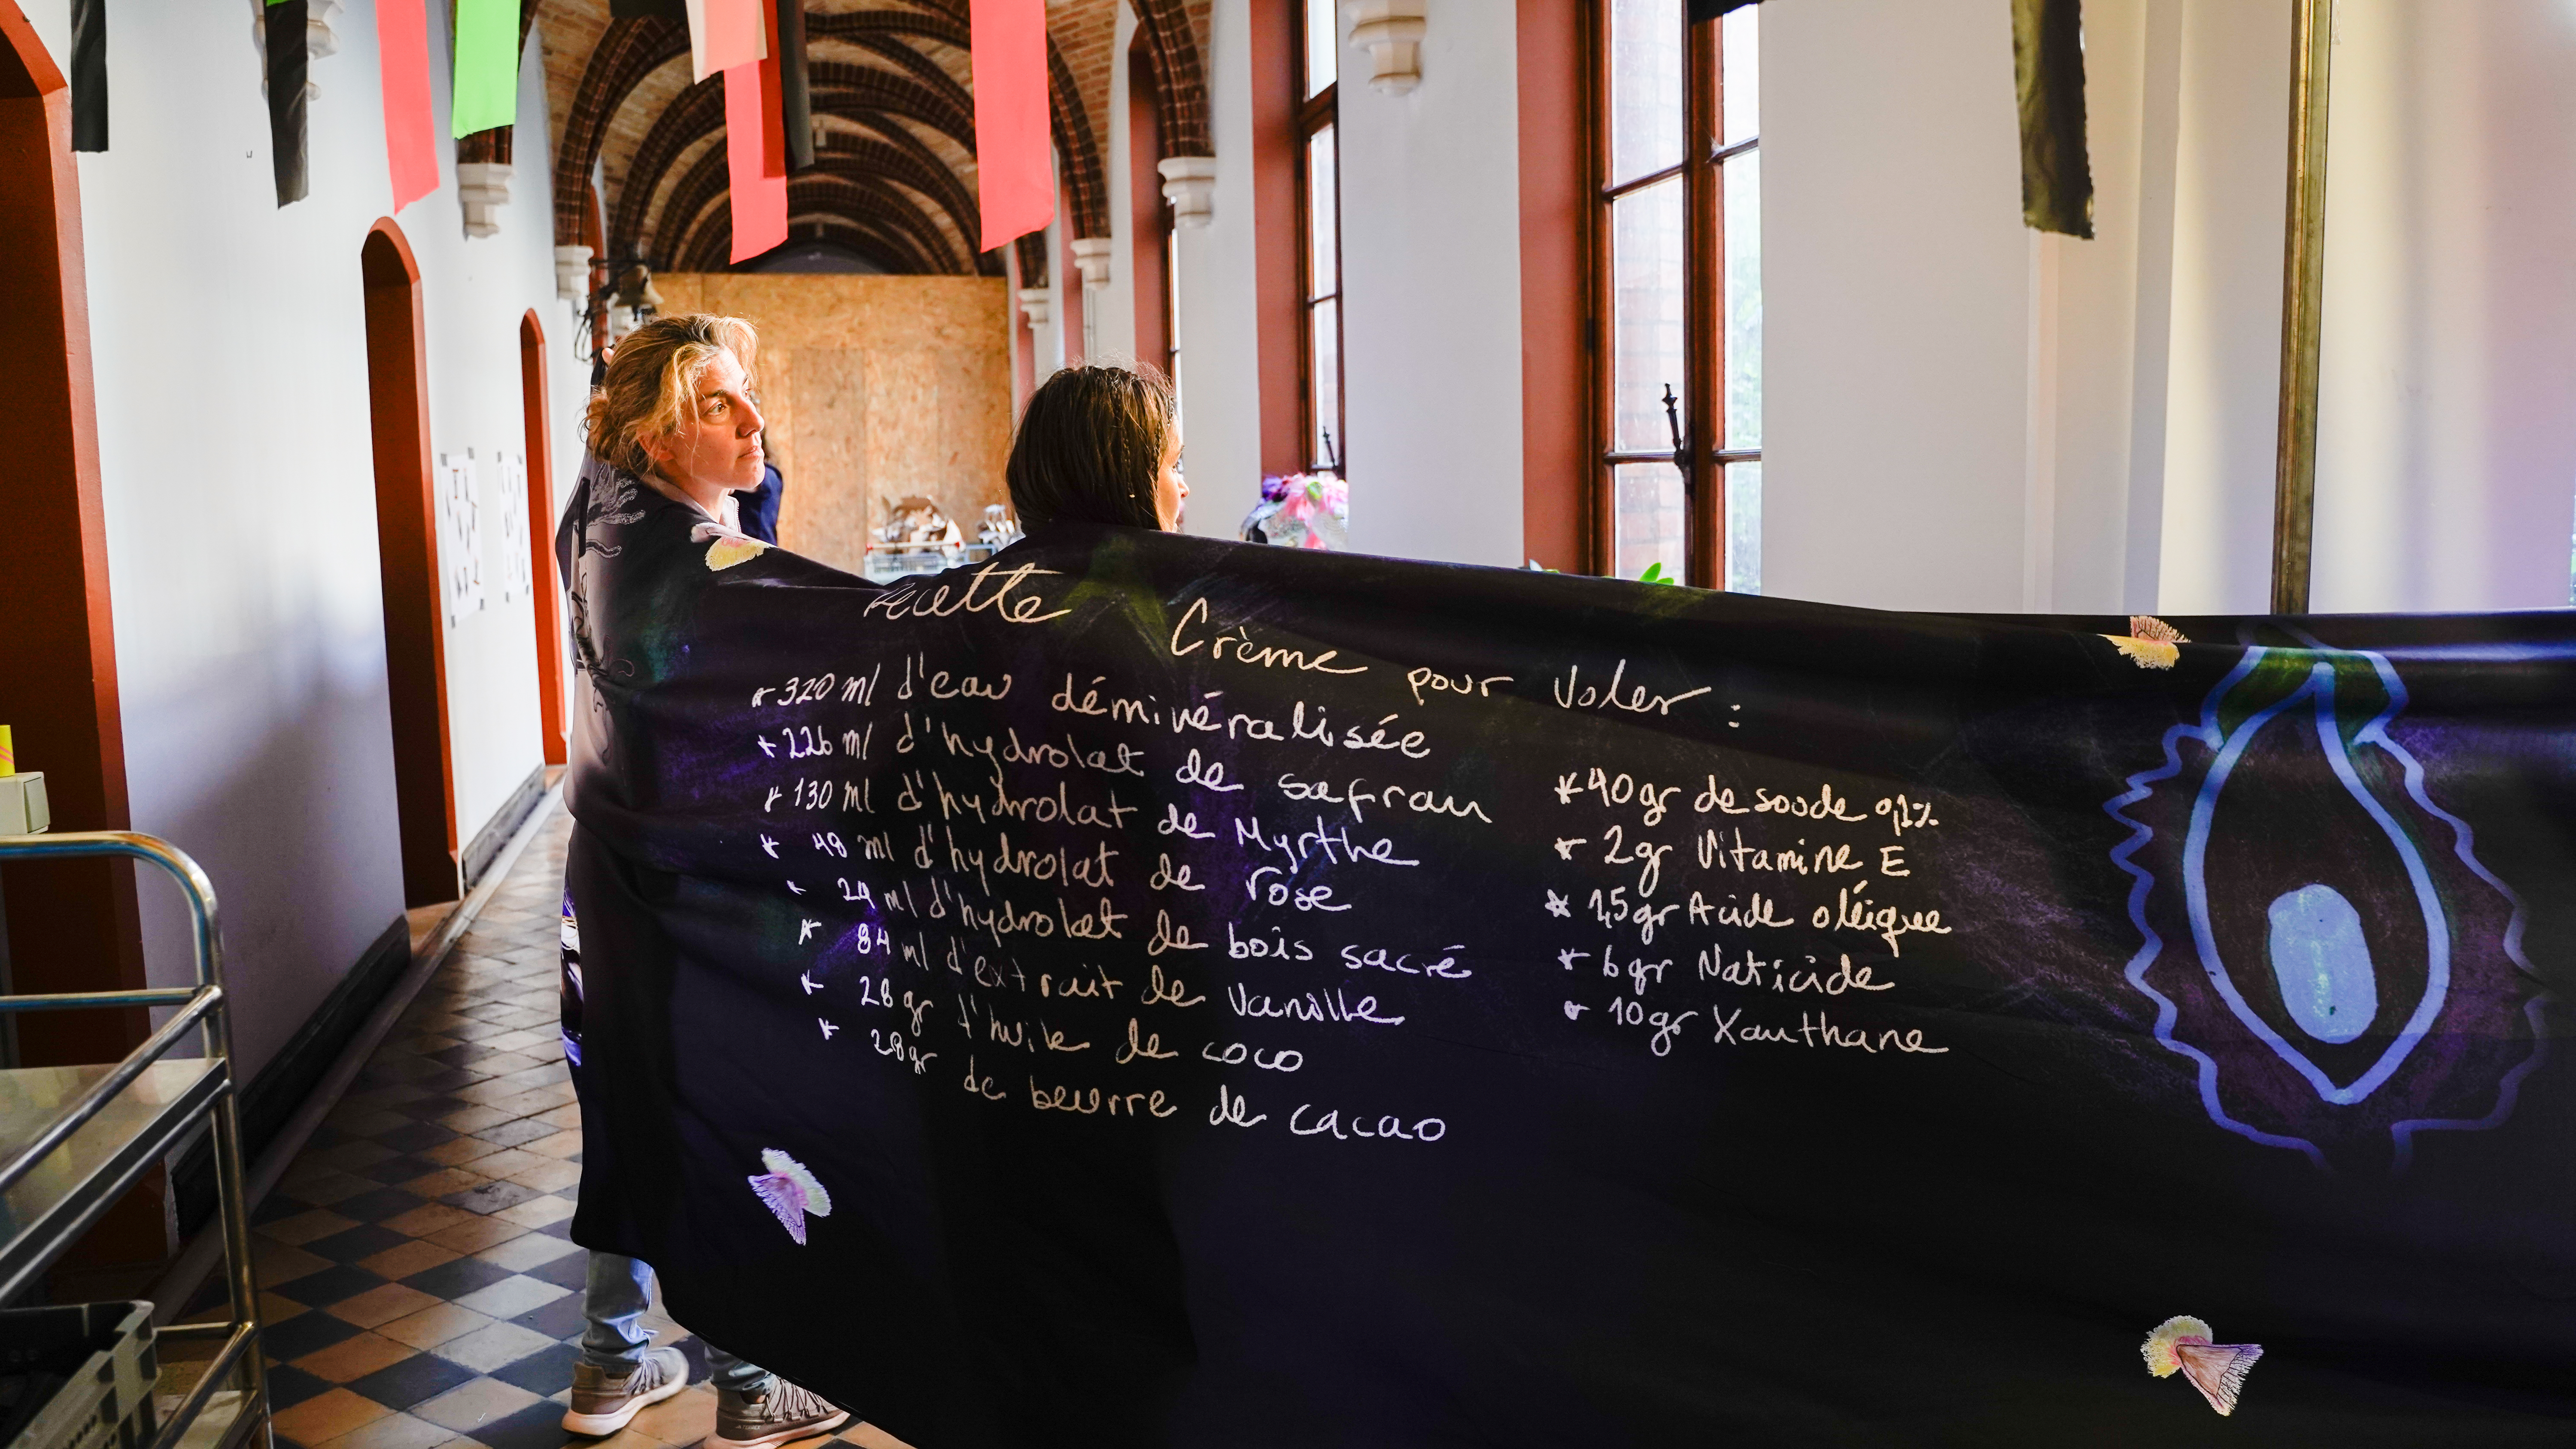 recette Crème pour Voler :
* 320 ml d'eau déminéralisée
* 226 ml d'hydrolat de safran
* 130 ml d'hydrolat de Myrthe
* 48 ml d'hydrolat de rose
* 24 ml d'hydrolat de bois sacré
* 84 ml d'extrait de Vanille
* 28 gr d'huile de coco
* 28 gr de beurre de cacao
* 40 gr de soude 0,1%
* 2 gr Vitamine E
* 1,5 gr Acide oléique
* 6 gr Naticide
* 10 gr Xanthane